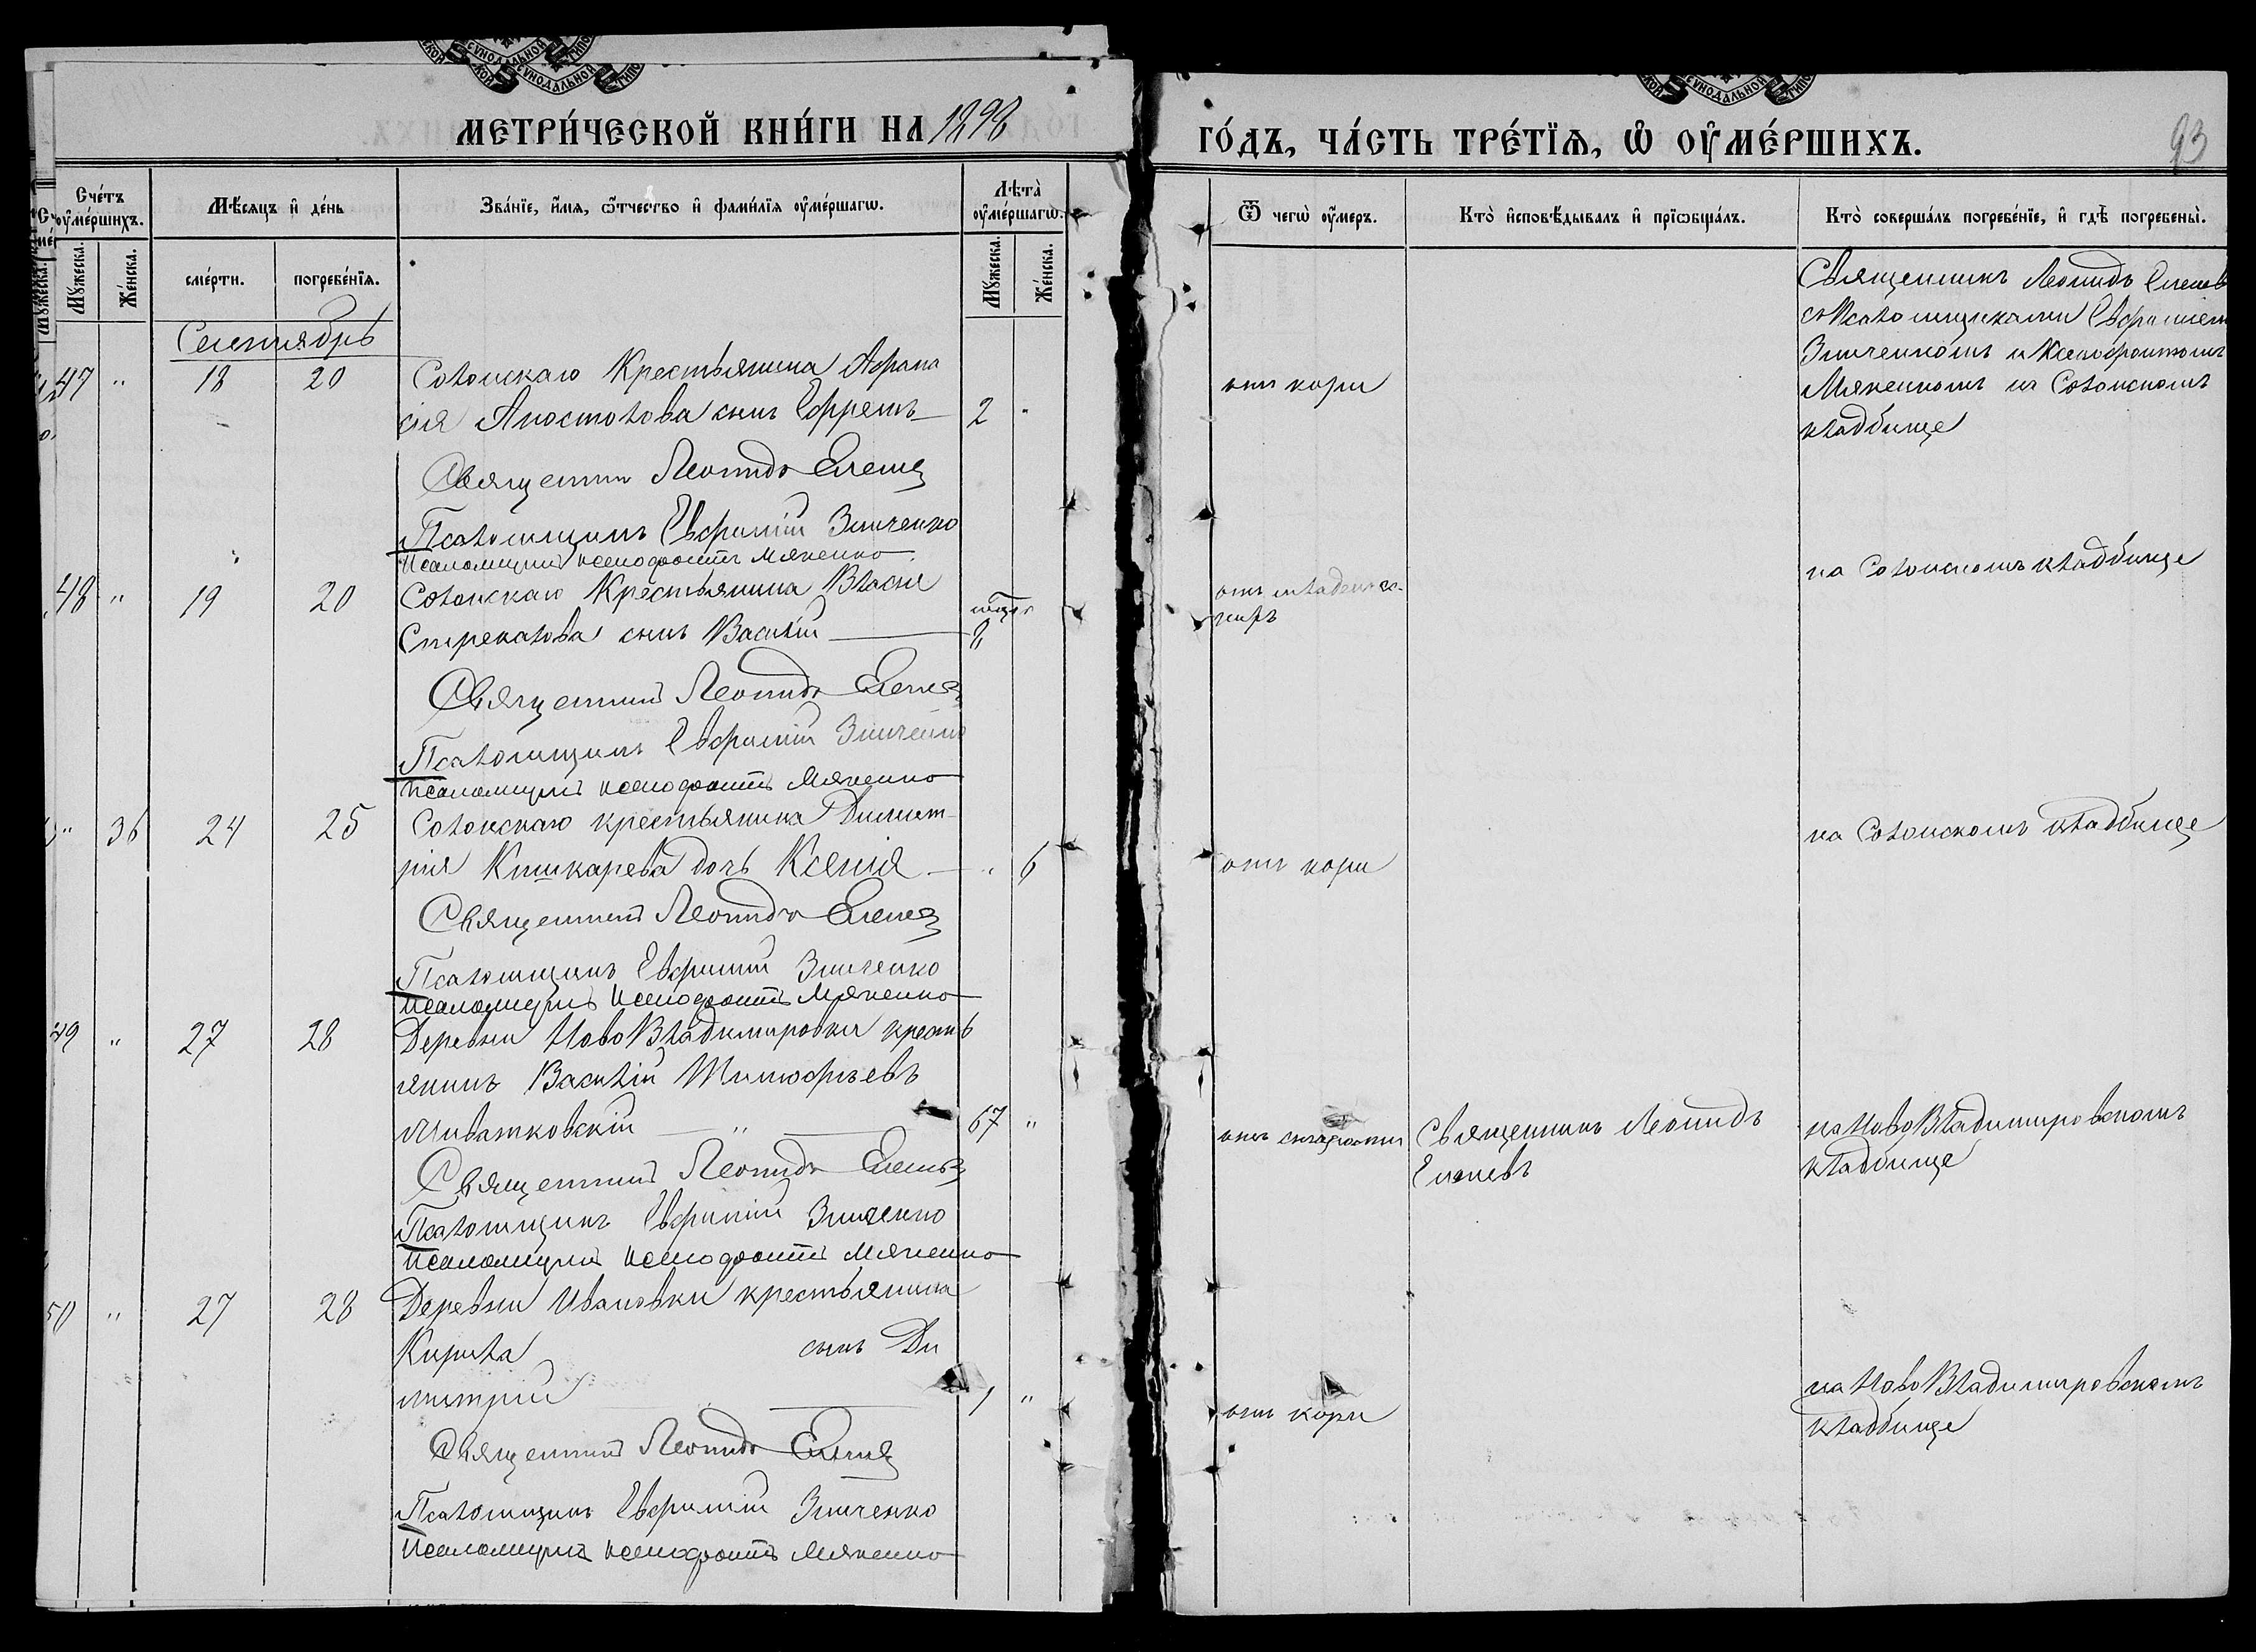 МЕТРИ́ЧЕСКОЙ КНИ́ГИ НА 1898 ГО́ДЪ, ЧА́СТЬ ТРЕ́ТІѦ, Ѡ ОУ҆МЕ́РШИХЪ.
93
Сче́тъ оу҆ме́ршихъ.
Мѣ́сяцъ и҆ де́нь
Зва́нїе, и҆́мя, ѻ҆́тчество и҆ фами́лїя оу҆ме́ршагѡ.
Лѣта̀ оу҆ме́ршагѡ.
Ѿ чегѡ̀ оу҆́меръ.
Кто̀ и҆сповѣ́дывалъ и҆ прїѡбща́лъ.
Кто̀ соверша́лъ погребе́нїе, и҆ гдѣ̀ погребены̀.
Мꙋ́жеска.
Же́нска.
сме́рти.
погребе́нїя.
Мꙋ́жеска.
Же́нска.
Сентябрь
47 " 18 20 Солонскаго Крестьянина Афана
сія Апостолова сынъ Ефремъ 2 "
отъ кори
Священникъ Леонидъ Еленев
съ Псаломщиками Евфимiем
Зинченкомъ и Ксенофонтомъ
Мякенкомъ на Солонскомъ
кладбище
Священникъ Леонидъ Еленев
Псаломщикъ Евфимій Зинченко
Псаломщикъ Ксенофонтъ Мякенко
48 " 19 20 Солонскаго Крестьянина Власія
Стрекалова сынъ Василій мѣся 8
отъ младенче-
ких
на Солонскомъ кладбище
Священникъ Леонидъ Еленев
Псаломщикъ Евфимій Зинченко
Псаломщикъ Ксенофонтъ Мякенко
" 36 24 25 Солонскаго крестьянина Димит-
рія Кишкарева дочь Ксенія " 6
отъ кори
на Солонскомъ кладбище
Священникъ Леонидъ Еленев
Псаломщикъ Евфимій Зинченко
Псаломщикъ Ксенофонтъ Мякенко
49 " 27 28 Деревни НовоВладимировки кресть
янинъ Василій Тимофѣевъ
Чиватковскій " 67 "
отъ старости
Священникъ Леонидъ
Еленевъ
на НовоВладимировскомъ
кладбище
Священникъ Леонидъ Еленев
Псаломщикъ Евфимій Зинченко
Псаломщикъ Ксенофонтъ Мякенко
50 " 27 28 Деревни Ивановки крестьянина
Кирила сынъ Ди
митрій 1 "
отъ кори
на НовоВладимировскомъ
кладбище
Священникъ Леонидъ Еленев
Псаломщикъ Евфимій Зинченко
Псаломщикъ Ксенофонтъ Мякенко